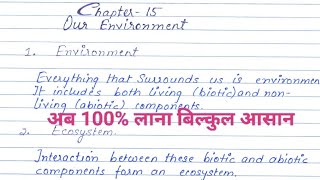 Chapter-15
Our Environment
1. Environment
Everything that Surrounds us is environmen
It includes both living (biotic) and non-
living (abiotic) components.
अब 100% लाना बिल्कुल आसान
2. Ecosystem
Interaction between these biotic and abiotic
components form an ecosystem.